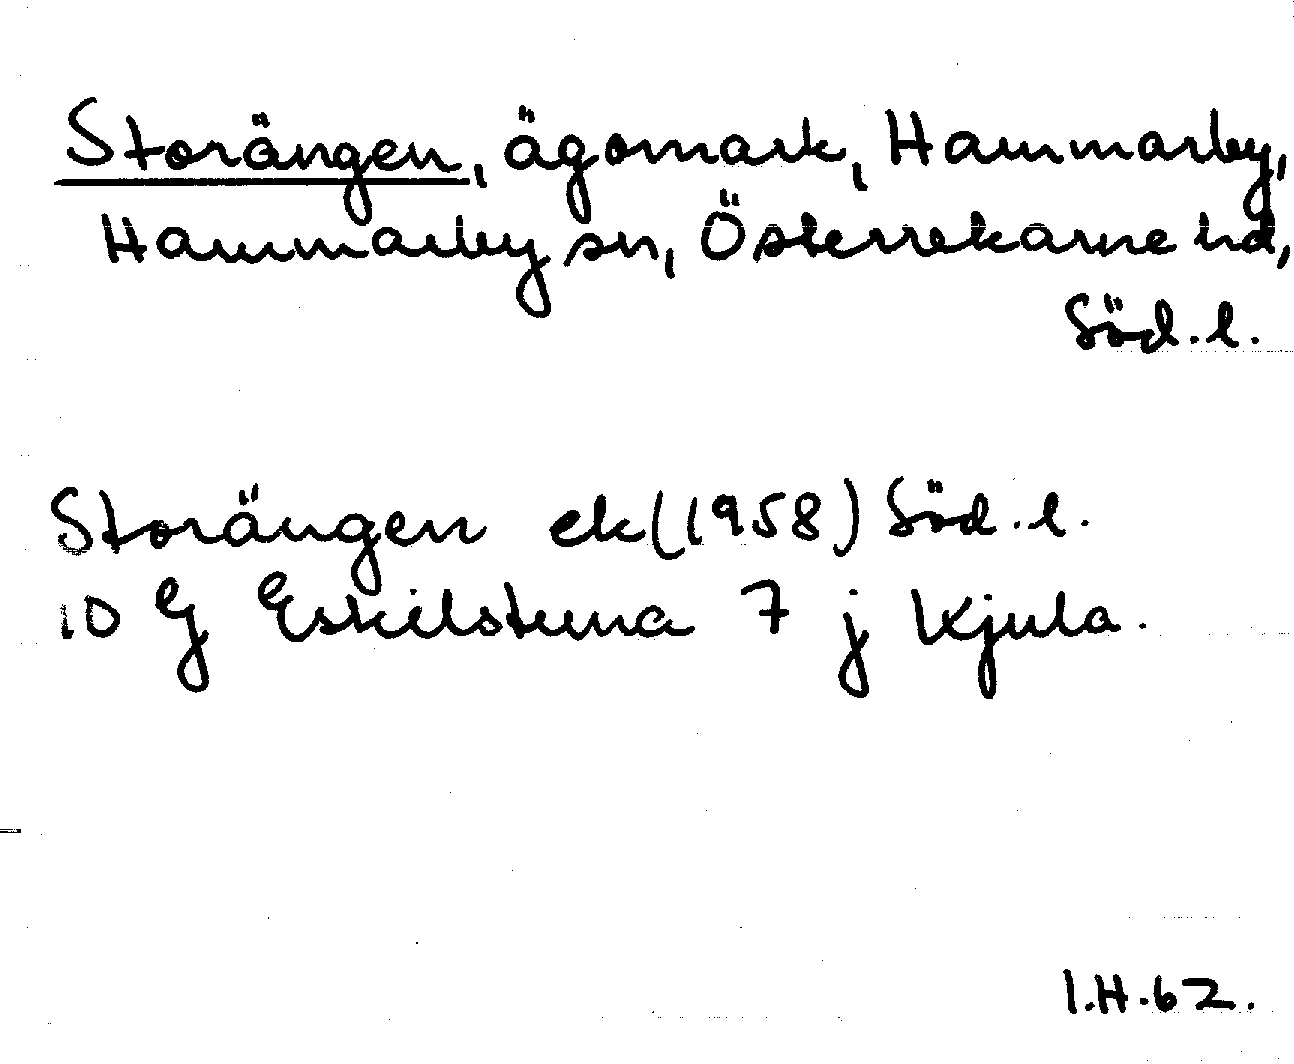 Storängen, ägomark, Hammarby,
Hammarby sn, Österrekarne hd,
Söd.l.
Storängen ek(1958) Söd.l.
10 G Eskilstuna 7 j Kjula.
I.H.62.